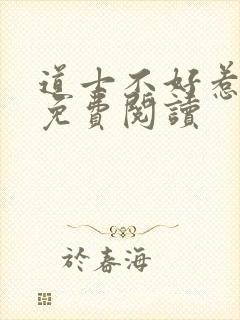 道士不好惹
免費閱讀
於春海